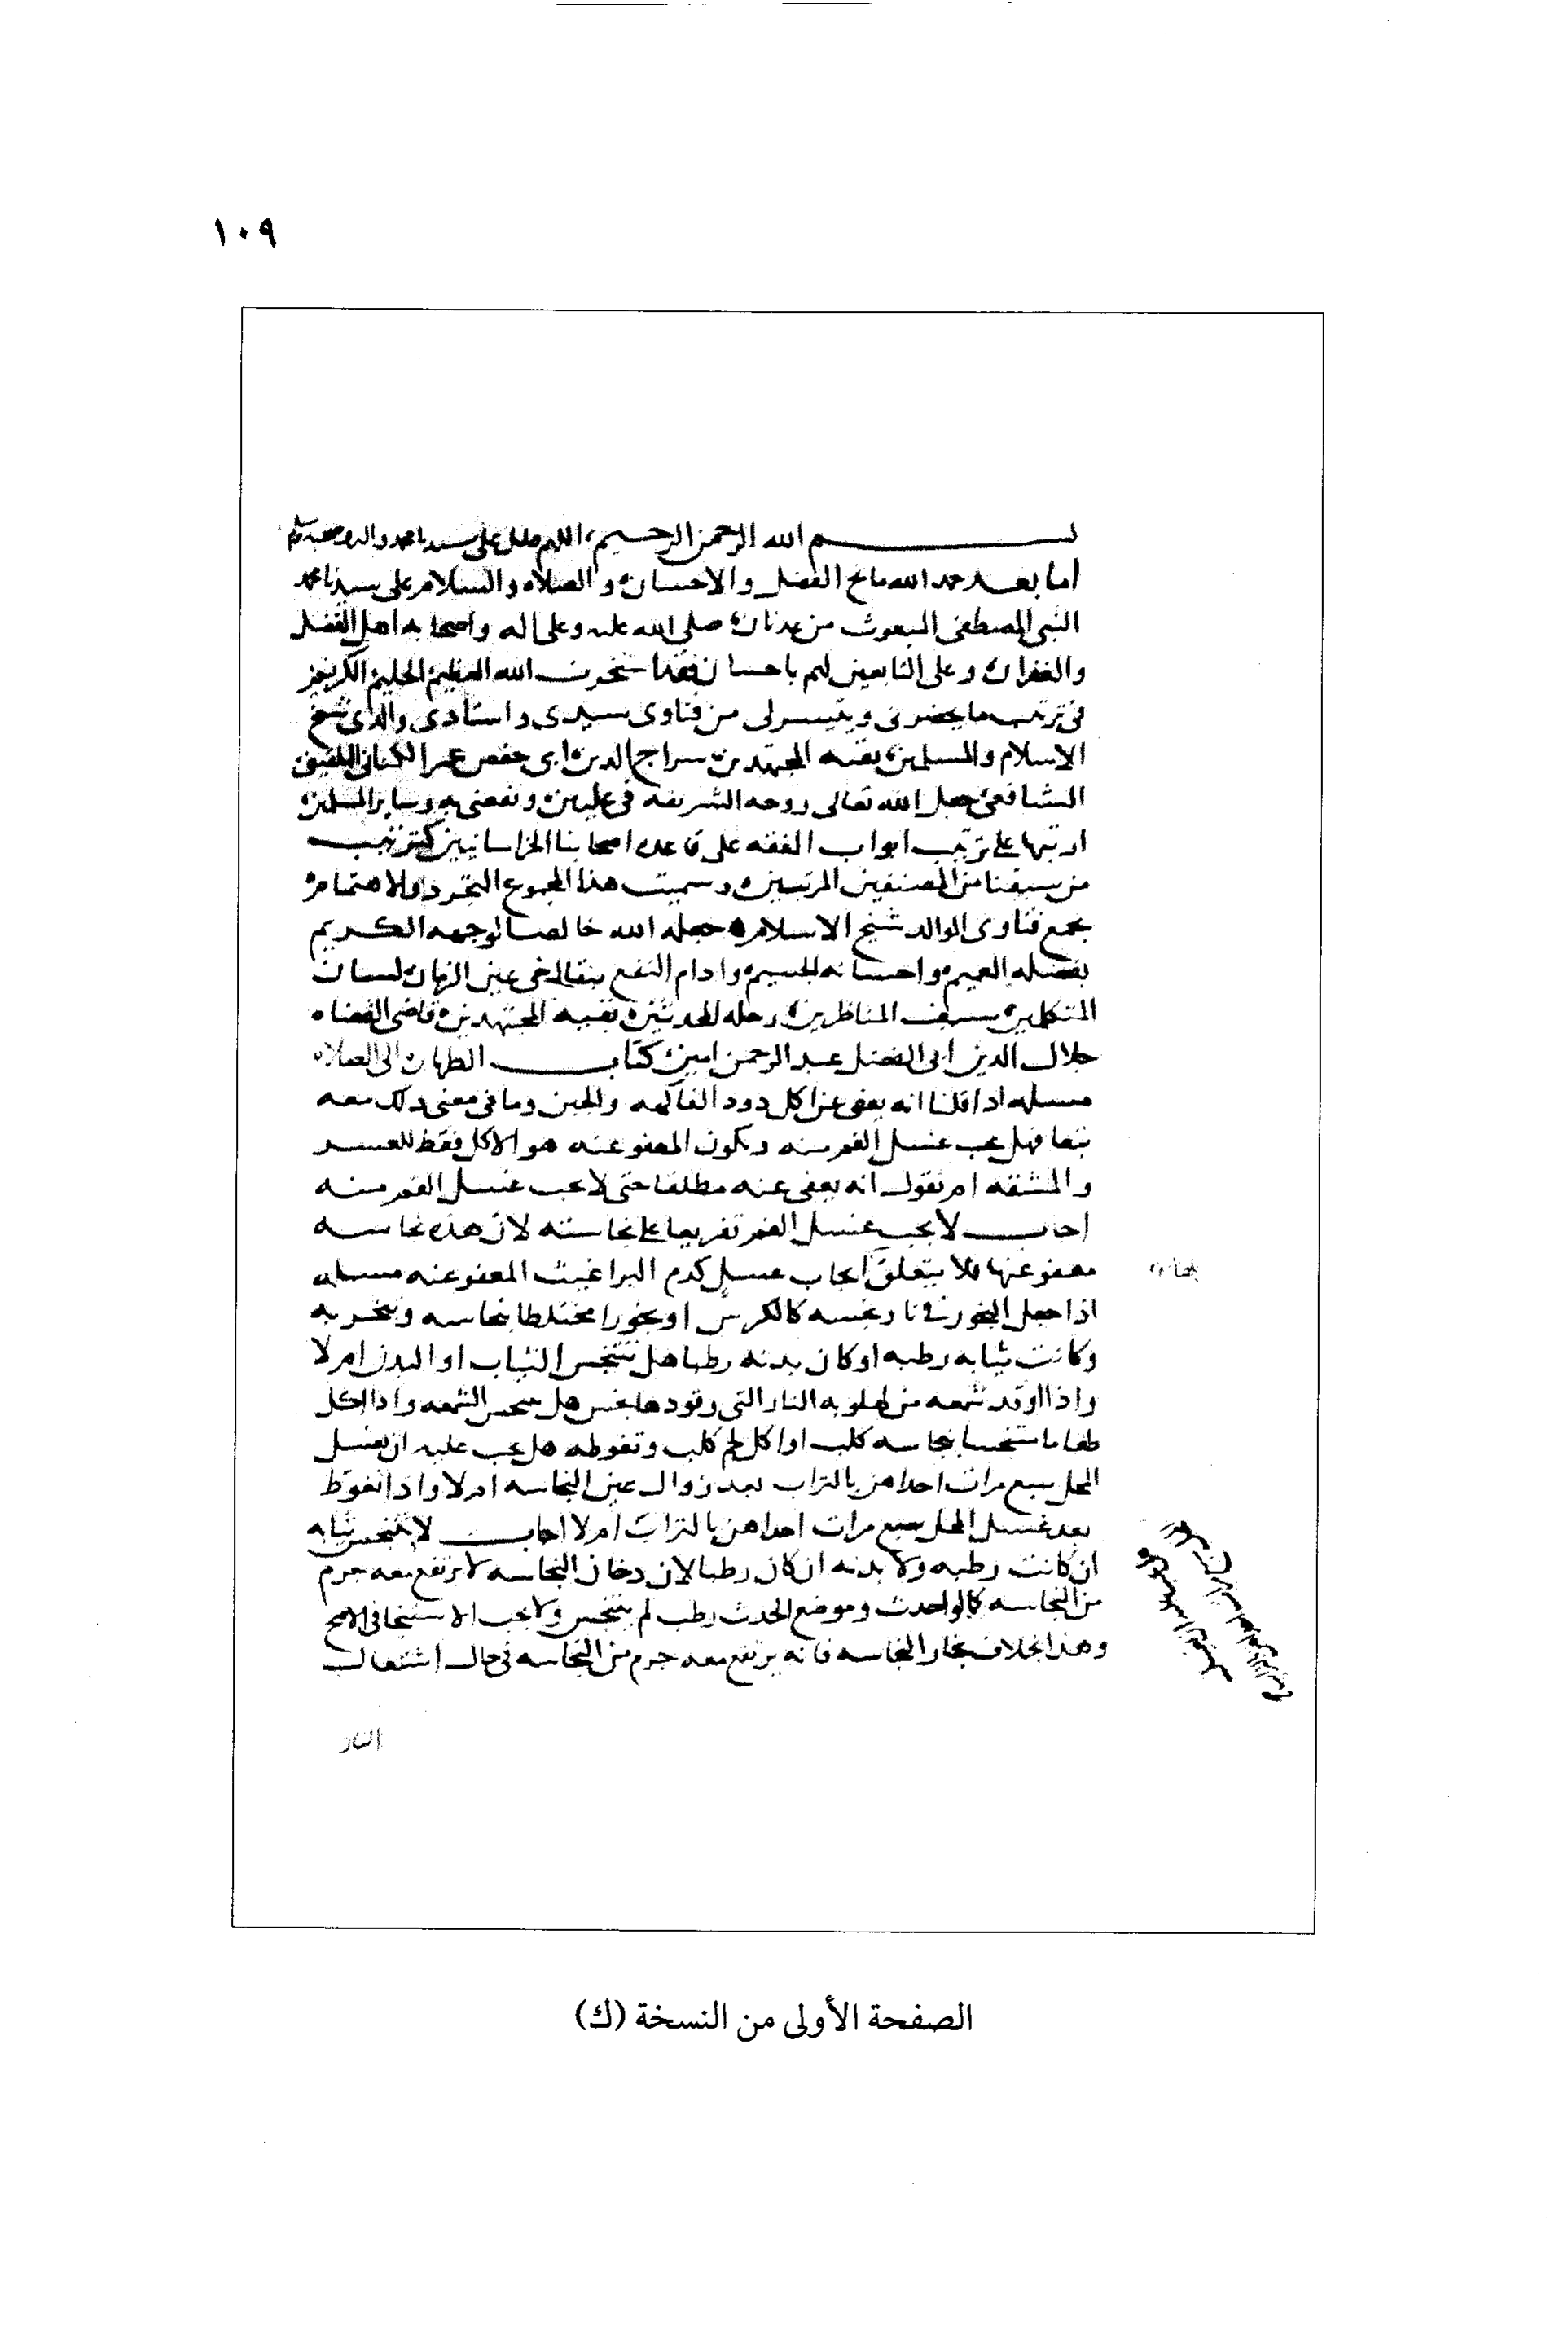 ١٠٩
بسم الله الرحمن الرحيم، اللهم صل على سيدنا محمد واله وصحبه وسلم
اما بعد حمد الله مانح الفضل والاحسان والصلاه والسلام على سيدنا محمد
النبى المصطفى المبعوث من عدنان صلى الله عليه وعلى اله واصحابه اهل الفضل
والغفران وعلى التابعين لهم باحسان فقد استخرت الله العظيم الحليم الكريم
فى ترتيب ما يحضرنى ويتيسر لى من فتاوى سيدى واستادى والدى شيخ
الاسلام والمسلمين بقية المجتهدين سراج الدين ابى حفص عمر الكنانى البلقينى
الشافعى جعل الله تعالى روحه الشريفه فى عليين ونفعنى به وساير المسلمين
ارتبها على ترتيب ابواب الفقه على قاعده اصحابنا الخراسانيين كترتيب
من سبقنا من المصنفين المرتبين وسميت هذا المجموع التجرد والاهتمام
بجمع فتاوى الوالد شيخ الاسلام جعله الله خالصا لوجهه الكريم
بفضله العميم واحسانه الجسيم وادام النفع ببقا اخى عين الزمان لسان
المتكلمين سيف المناظرين رحله المحدثين بقيه المجتهدين قاضى القضاه
جلال الدين ابى الفضل عبد الرحمن امين كتاب الطهاره الى الصلاه
مسله اذا قلنا انه يعفى عن اكل دود الفاكهه والجبن وما فى معنى ذلك معه
تبعا فهل يجب غسل الفم منه ويكون المعفو عنه هو الاكل فقط للعسر
والمشقه ام نقول انه يعفى عنه مطلقا حتى لا يجب غسل الفم منه
اجاب لا يجب غسل الفم تفريعا على نجاسته لان هذه نجاسه
معفو عنها فلا يتعلق ايجاب غسل كدم البراغيث المعفو عنه مسله
اذا جعل البخور فى نار نجسه كالكرس او بخورا مختلطا بنجاسه وتبخر به
وكانت ثيابه رطبه او كان بدنه رطبا هل تتنجس الثياب او البدن ام لا
واذا اوقد شمعه من النار التى وقودها نجس هل تنجس الشمعه واذا اكل
طعاما متنجسا بنجاسه كلب او اكل لحم كلب وتغوطه هل يجب عليه ان يغسل
المحل سبع مرات احداهن بالتراب بعد زوال عين النجاسه ام لا واذا تغوط
بعد غسل المحل سبع مرات احداهن بالتراب ام لا اجاب لا تتنجس ثيابه
ان كانت رطبه ولا بدنه ان كان رطبا لان دخان النجاسه لا يرتفع معه جرم
من النجاسه كما لو احدث وموضع الحدث رطب لم يتنجس ولا يجب الاستنجا فى الاصح
وهذا بخلاف بخار النجاسه فانه يرتفع معه جرم من النجاسه فى حال اشتعال
النار
الصفحة الأولى من النسخة (ك)